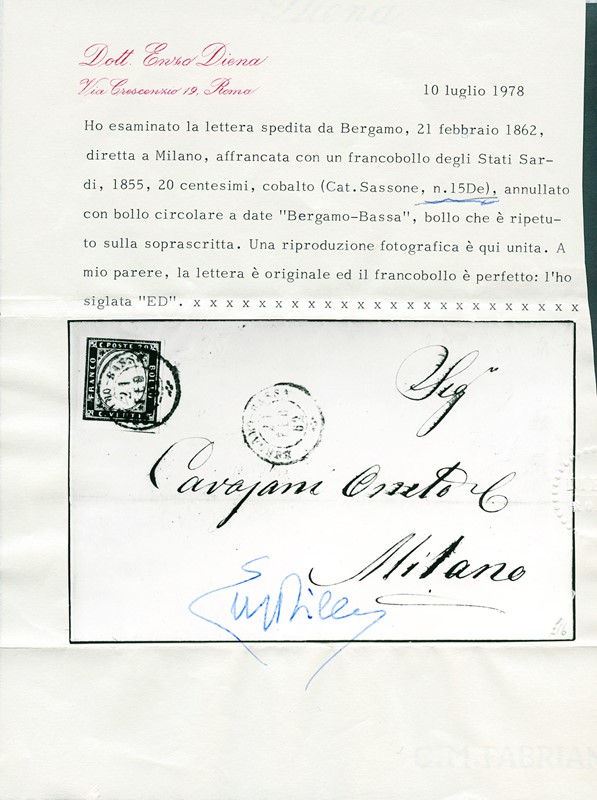 Dott. Enzo Diena
Via Crescenzio 19, Roma
10 luglio 1978
Ho esaminato la lettera spedita da Bergamo, 21 febbraio 1862,
diretta a Milano, affrancata con un francobollo degli Stati Sar-
di, 1855, 20 centesimi, cobalto (Cat. Sassone, n.15De), annullato
con bollo circolare a date "Bergamo-Bassa", bollo che è ripetu-
to sulla soprascritta. Una riproduzione fotografica è qui unita. A
mio parere, la lettera è originale ed il francobollo è perfetto: l'ho
siglata "ED". x x x x x x x x x x x x x x x x x x x x x x x x x x
C. POSTE 20
FRANCO
BOLLO
C. VENTI
21
FEB
BERGAMO-BASSA
21
FEB
62
Sigr
Milano
C.M. FABRIAN